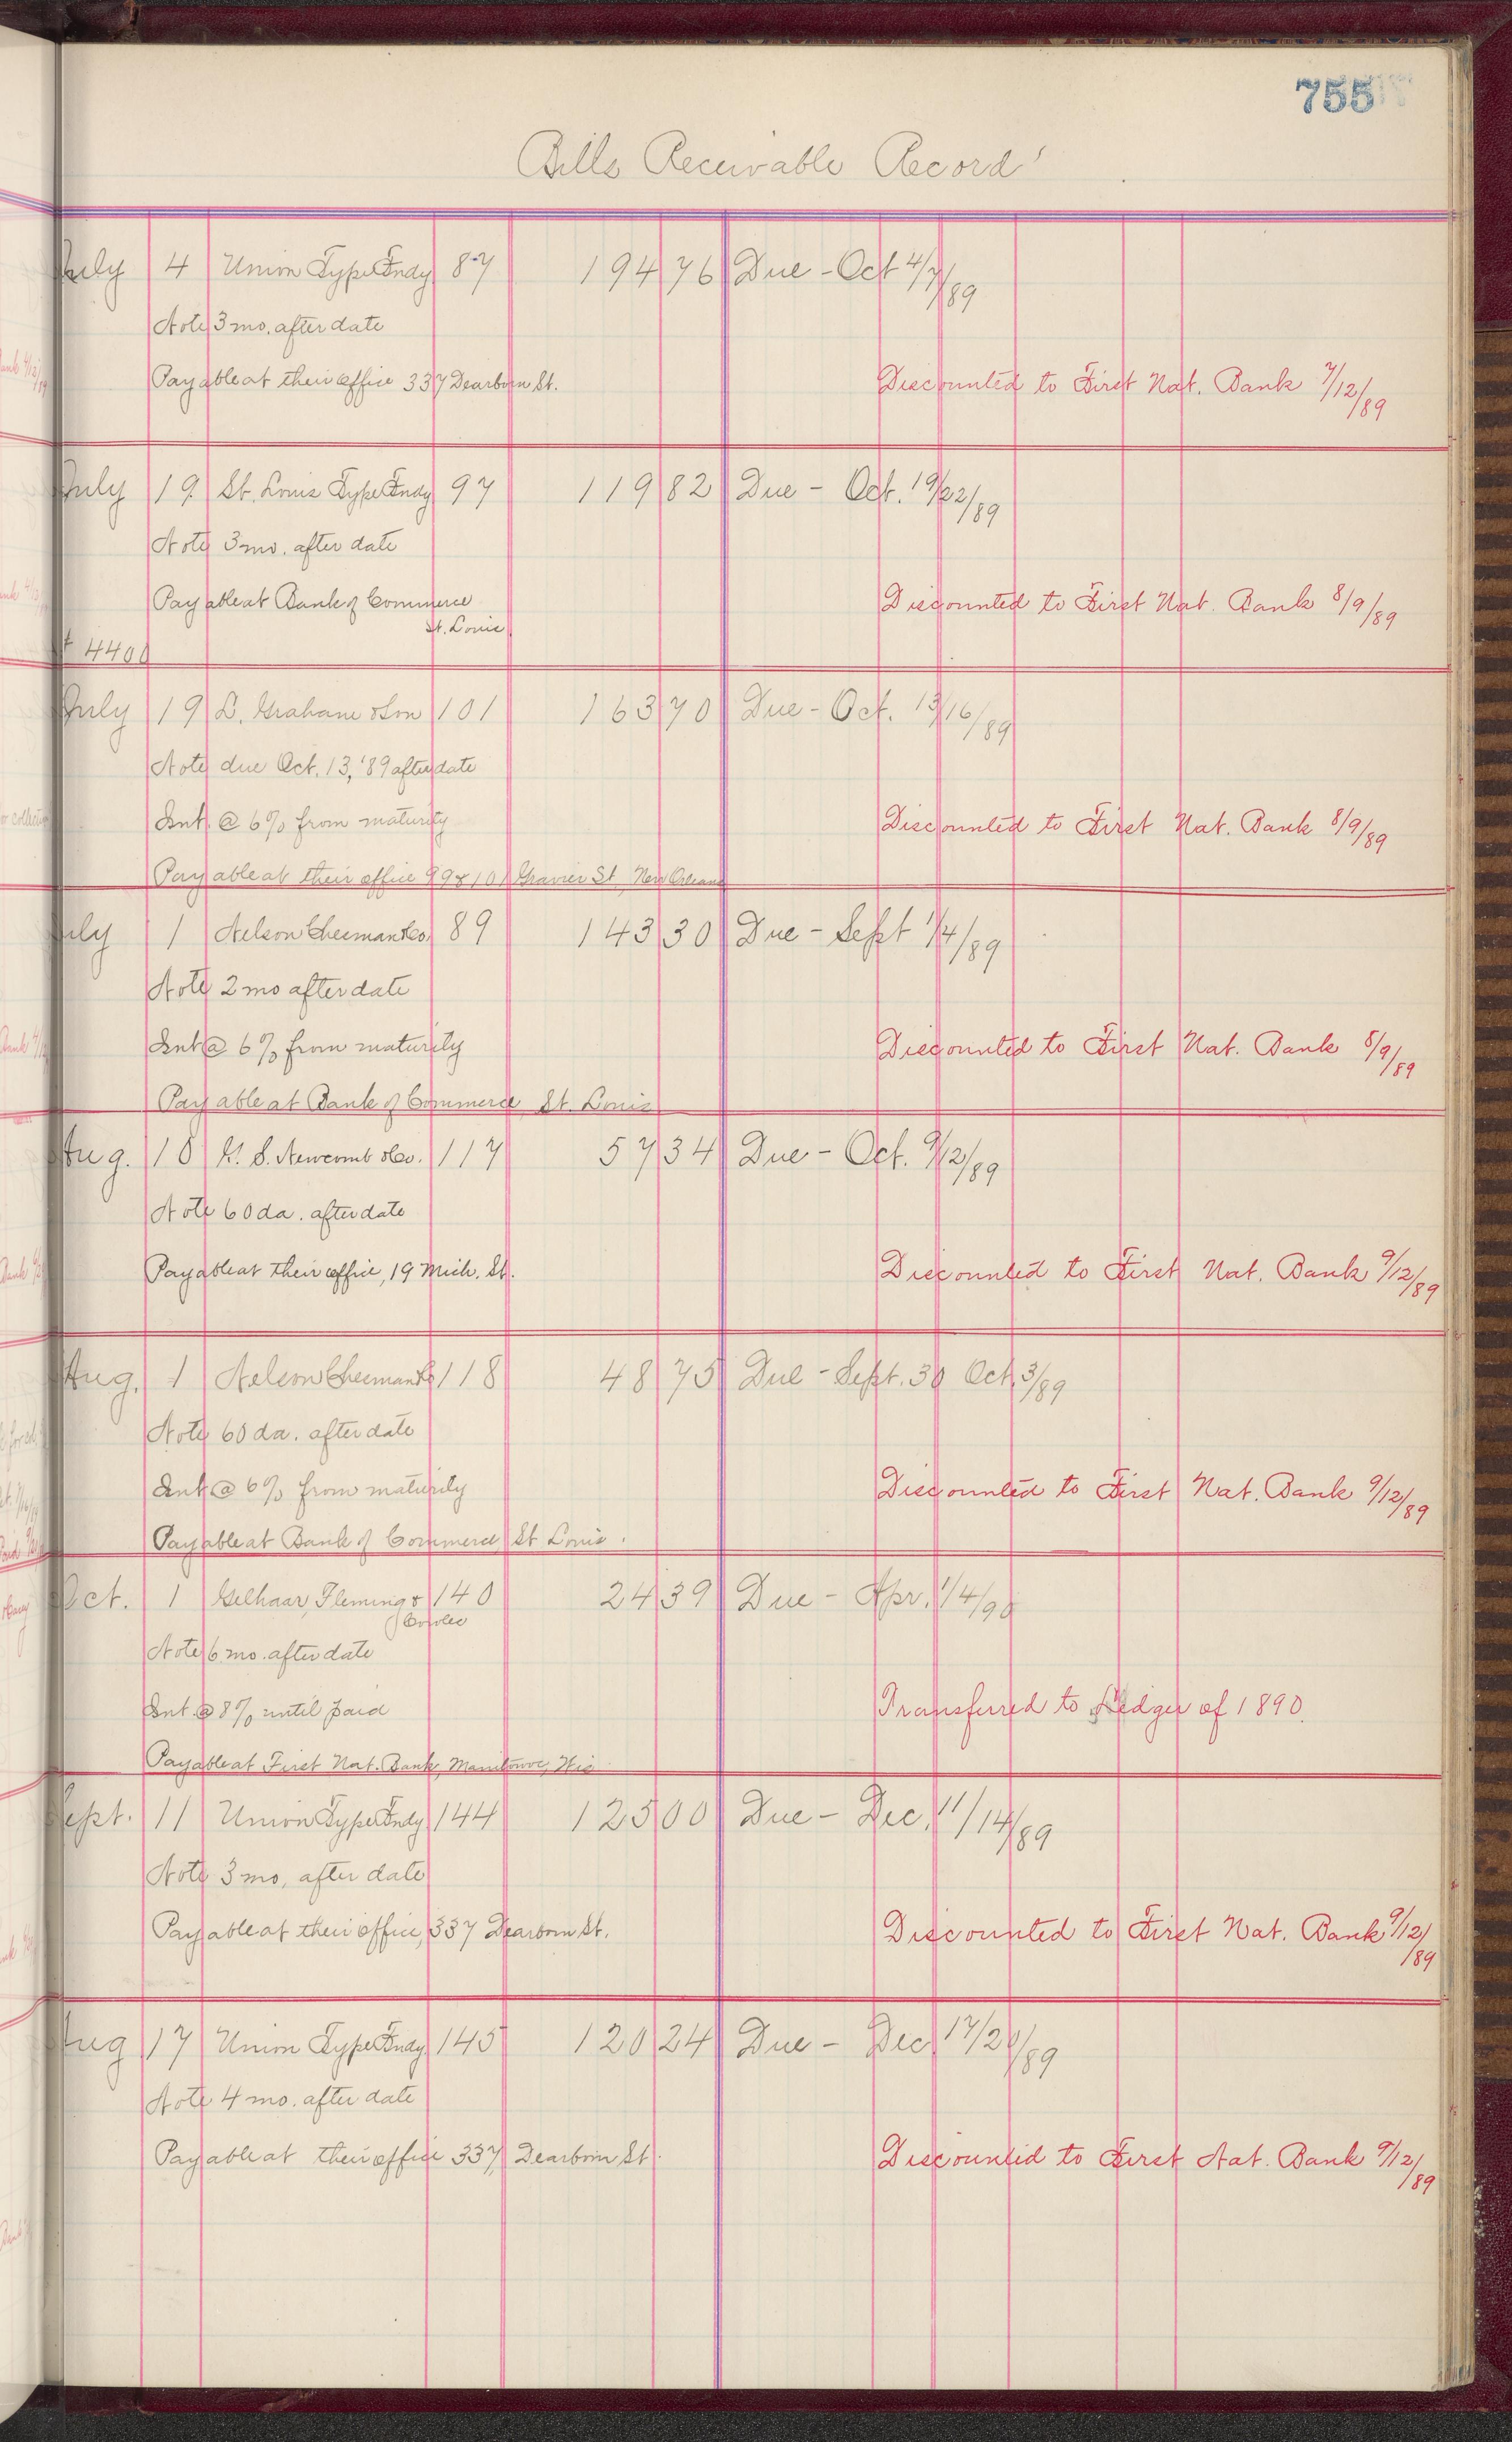 755
Bills Receivable Record
July 4 Union Type Fndy 87 194 76 Due - Oct 4/7/89
Note 3 mo. after date
Payable at their office 337 Dearborn St. Discounted to First Nat. Bank 7/12/89
July 19 St. Louis Type Fndy 97 119 82 Due - Oct. 19/22/89
Note 3 mo. after date
Payable at Bank of Commerce Discounted to First Nat. Bank 8/9/89
St. Louis
4400
July 19 D. Graham & Son 101 163 70 Due - Oct. 13/16/89
Note due Oct. 13, '89 after date
Int. @ 6% from maturity Discounted to First Nat. Bank 8/9/89
Payable at their office 99 & 101 Gravier St New Orleans
July 1 Nelson Chesman & Co. 89 143 30 Due - Sept 1/4/89
Note 2 mo after date
Int @ 6% from maturity Discounted to First Nat. Bank 8/9/89
Payable at Bank of Commerce St. Louis
Aug. 10 H. S. Newcomb & Co. 117 57 34 Due - Oct. 9/12/89
Note 60 da. after date
Payable at their office, 19 Mich. St. Discounted to First Nat. Bank 9/12/89
Aug. 1 Nelson Chesman & Co 118 48 75 Due - Sept. 30 Oct. 3/89
Note 60 da. after date
Int @ 6% from maturity Discounted to First Nat. Bank 9/12/89
Payable at Bank of Commerce St Louis.
Oct. 1 Gelhaar, Fleming & 140 24 39 Due - Apr. 1/4/90
Cowles
Note 6 mo. after date
Int. @ 8% until paid Transferred to Ledger of 1890.
Payable at First Nat. Bank, Manitowoc, Wis
Sept. 11 Union Type Fndy 144 125 00 Due - Dec. 11/14/89
Note 3 mo. after date
Payable at their office, 337 Dearborn St. Discounted to First Nat. Bank 9/12/89
Aug 17 Union Type Fndy 145 120 24 Due - Dec 17/20/89
Note 4 mo. after date
Payable at their office 337 Dearborn St. Discounted to First Nat. Bank 9/12/89